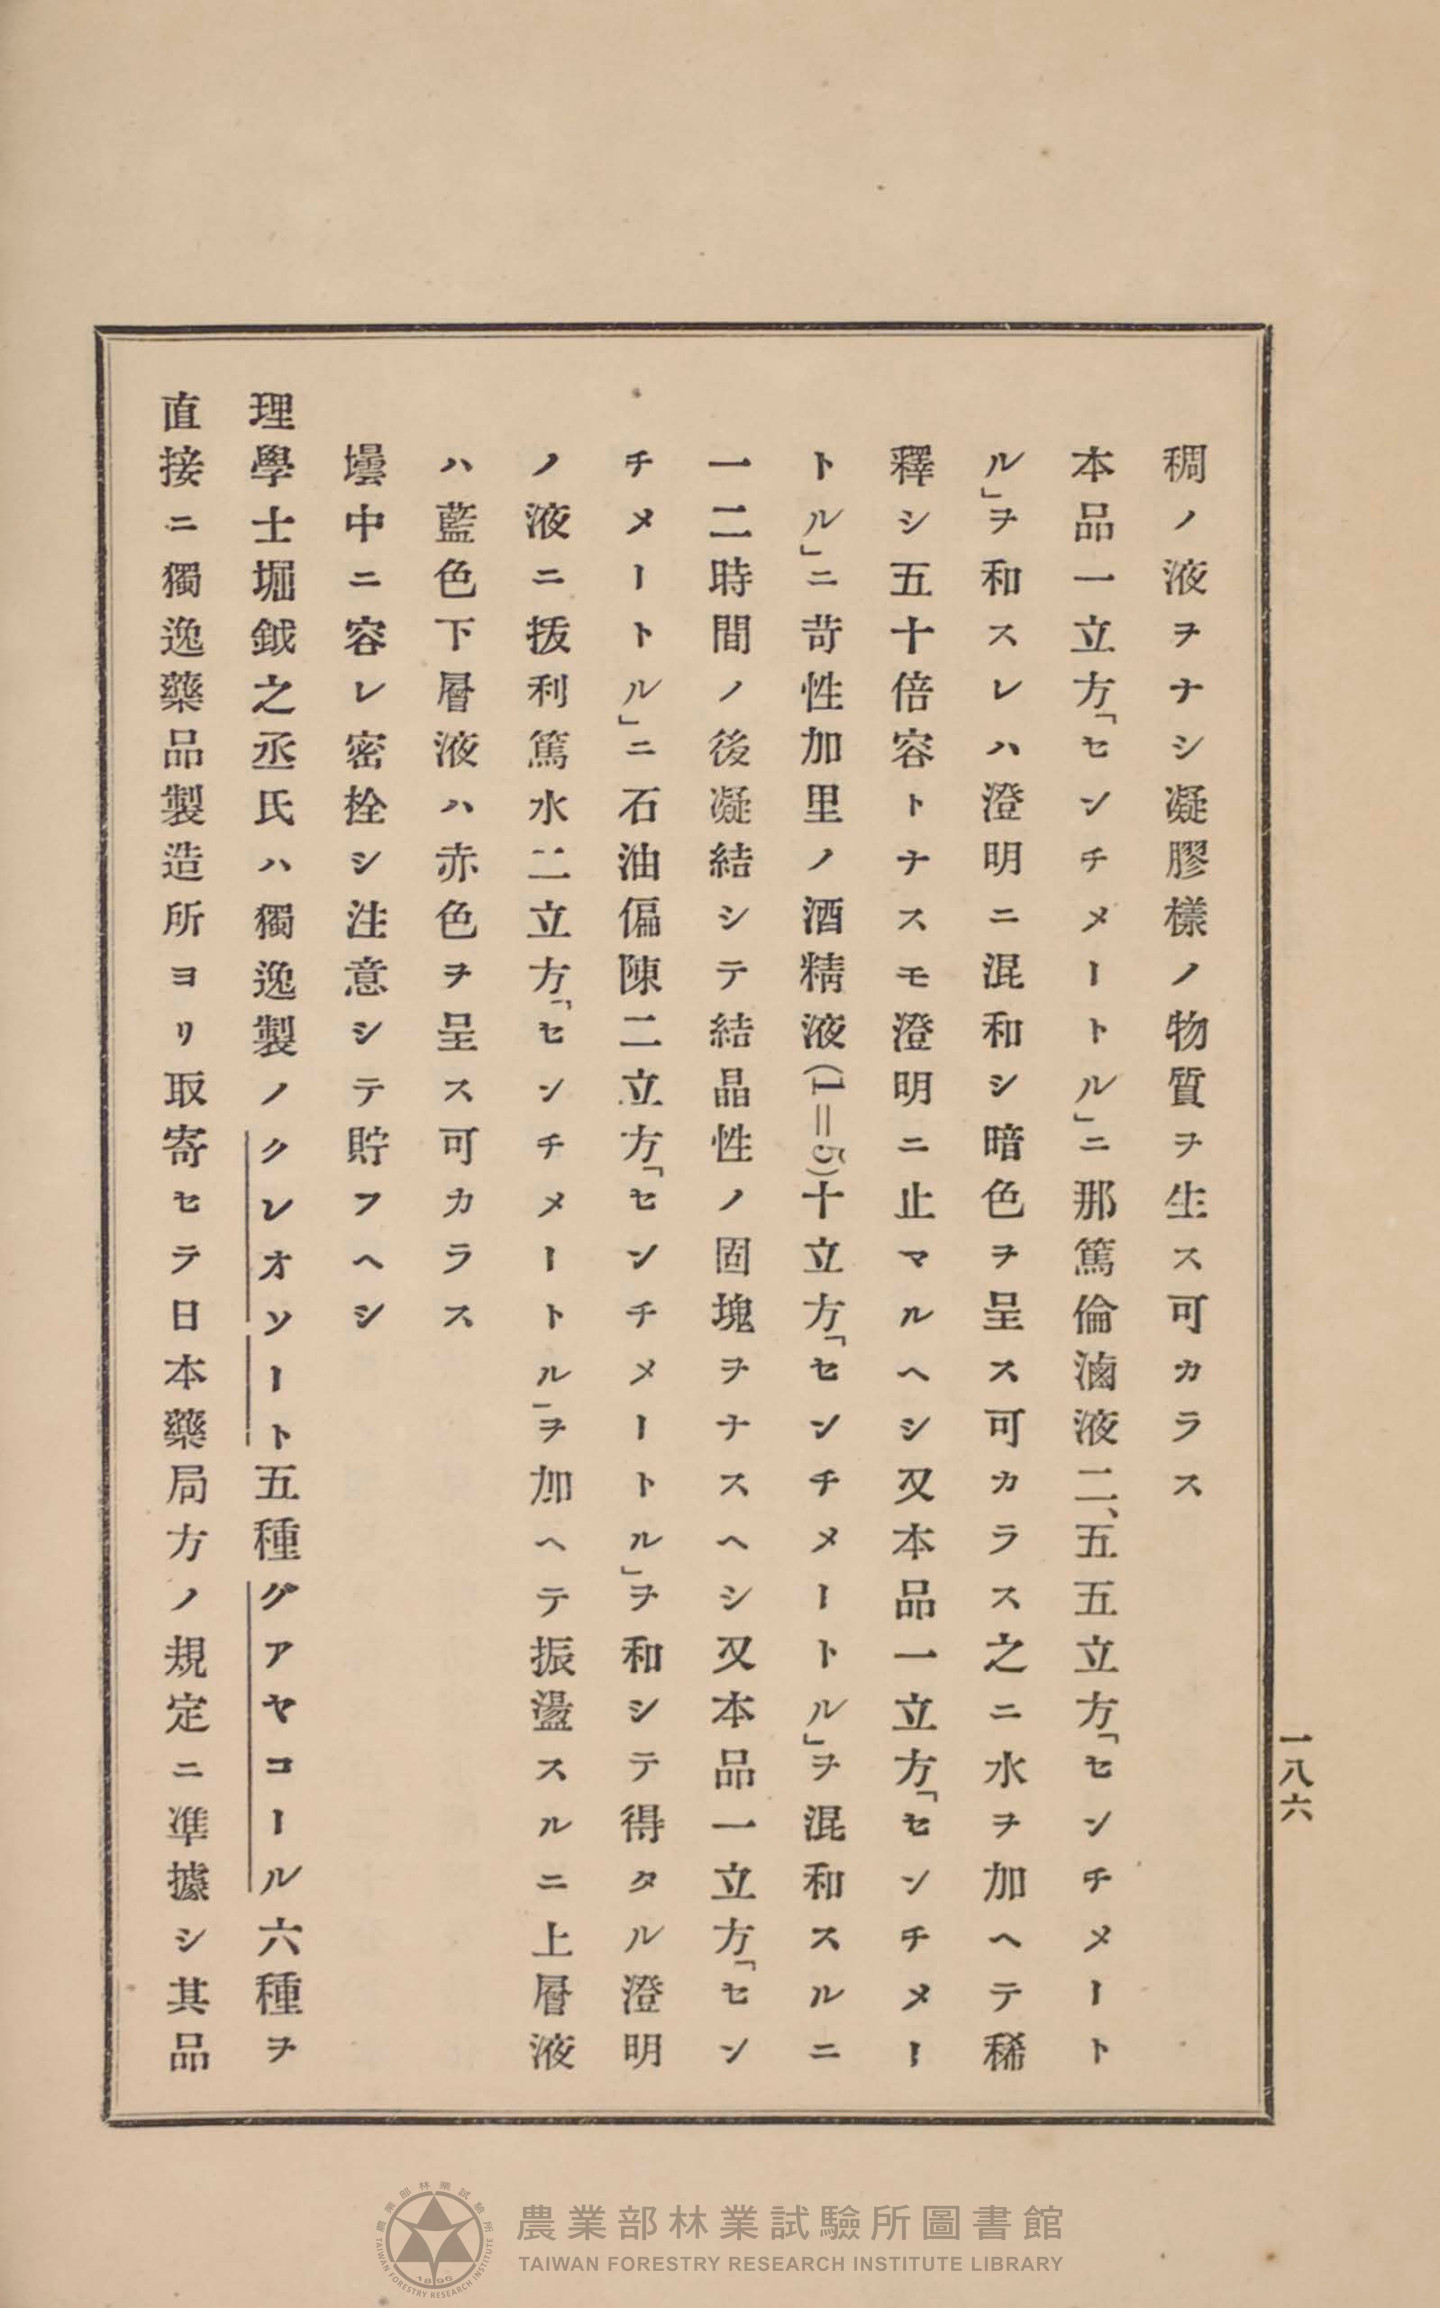 一八六
稠ノ液ヲナシ凝膠樣ノ物質ヲ生ス可カラス
本品一立方「センチメートル」ニ那篤倫滷液二、五五立方「センチメート
ル」ヲ和スレハ澄明ニ混和シ暗色ヲ呈ス可カラス之ニ水ヲ加ヘテ稀
釋シ五十倍容トナスモ澄明ニ止マルヘシ又本品一立方「センチメー
トル」ニ苛性加里ノ酒精液(1=5)十立方「センチメートル」ヲ混和スルニ
一二時間ノ後凝結シテ結晶性ノ固塊ヲナスヘシ又本品一立方「セン
チメートル」ニ石油偏陳二立方「センチメートル」ヲ和シテ得タル澄明
ノ液ニ拔利篤水二立方「センチメートル」ヲ加ヘテ振盪スルニ上層液
ハ藍色下層液ハ赤色ヲ呈ス可カラス
壜中ニ容レ密栓シ注意シテ貯フヘシ
理學士堀鉞之丞氏ハ獨逸製ノクレオソート五種グアヤコール六種ヲ
直接ニ獨逸藥品製造所ヨリ取寄セテ日本藥局方ノ規定ニ準據シ其品
農業部林業試驗所圖書館
TAIWAN FORESTRY RESEARCH INSTITUTE LIBRARY
農業部林業試驗所
TAIWAN FORESTRY RESEARCH INSTITUTE
1896